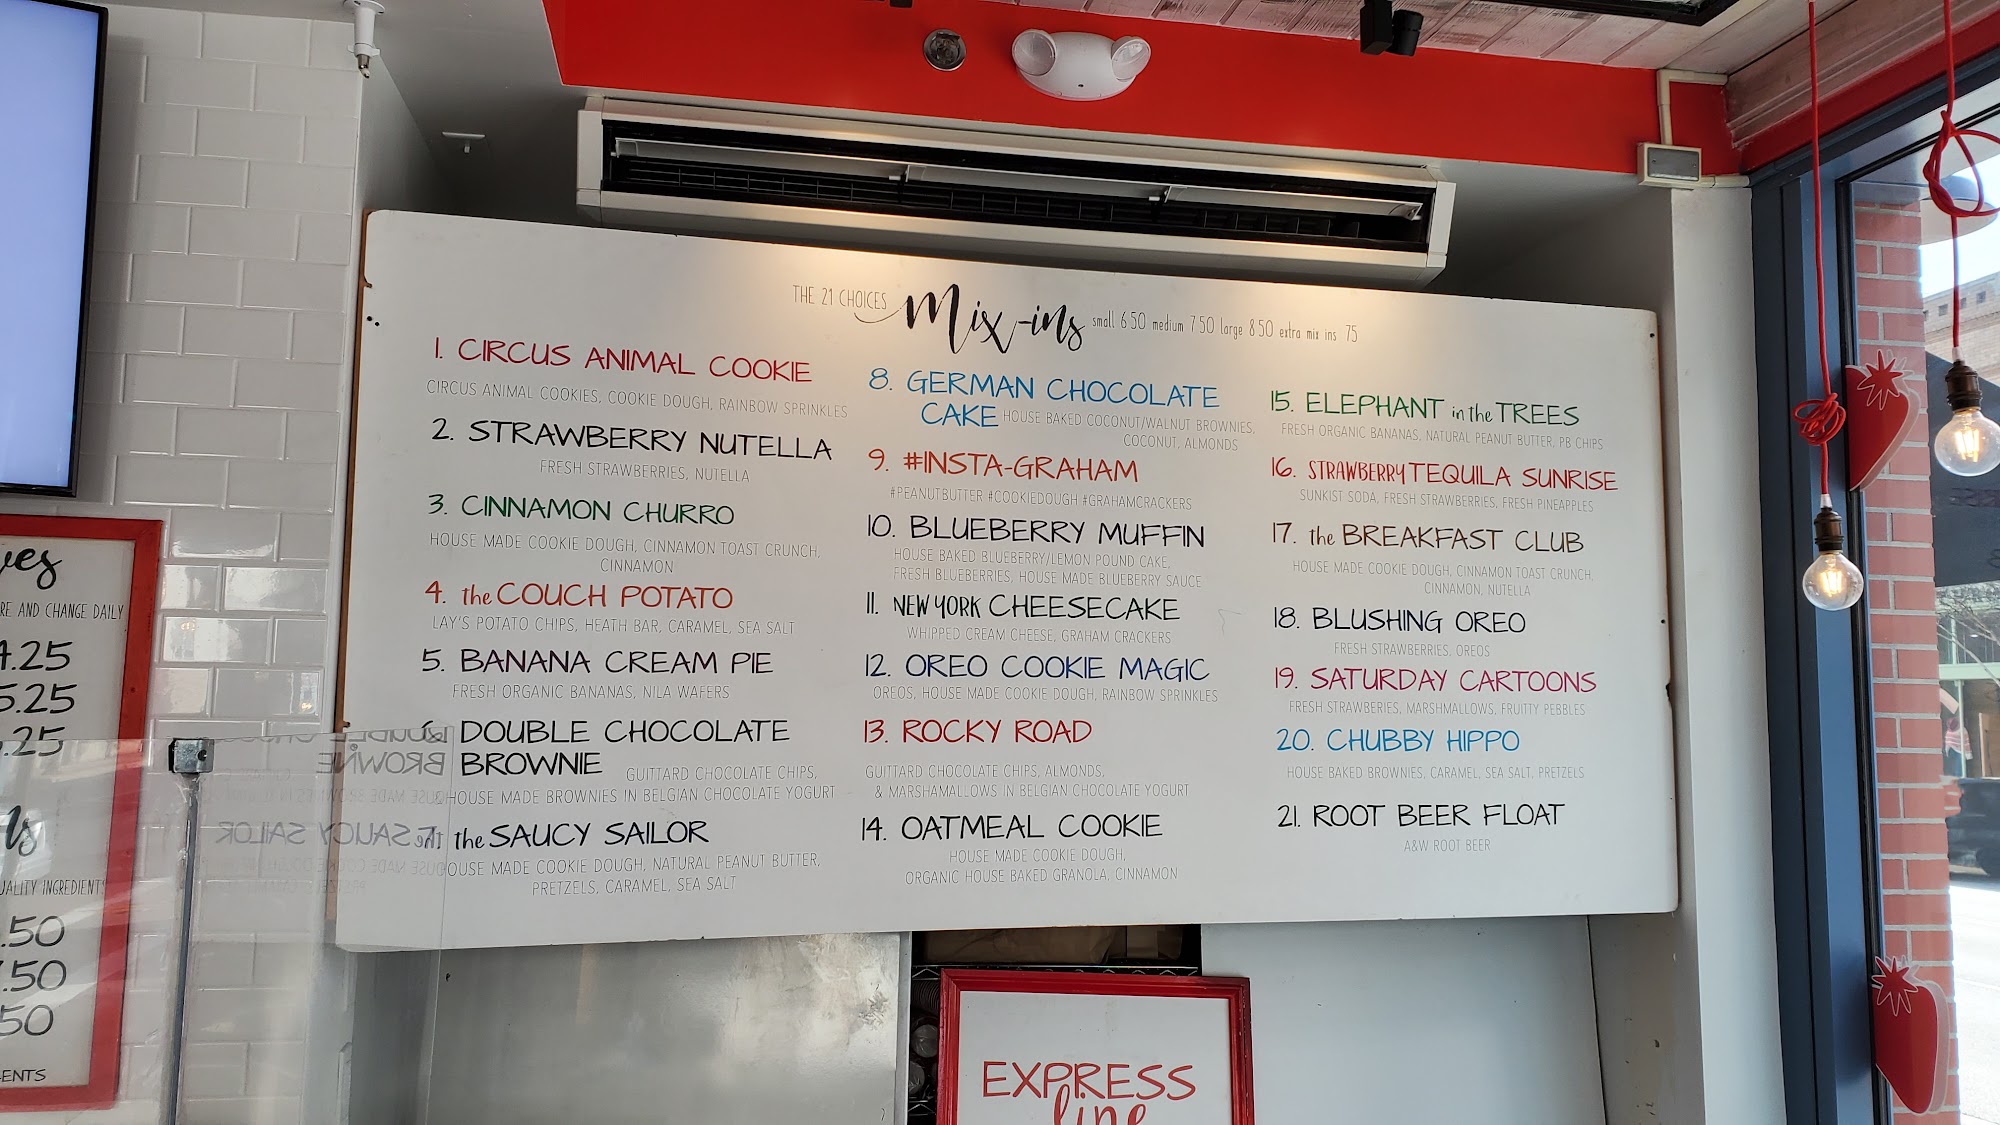 THE 21 CHOICES Mix-ins small 6.50 medium 7.50 large 8.50 extra mix ins .75
1. CIRCUS ANIMAL COOKIE
CIRCUS ANIMAL COOKIES, COOKIE DOUGH, RAINBOW SPRINKLES
2. STRAWBERRY NUTELLA
FRESH STRAWBERRIES, NUTELLA
3. CINNAMON CHURRO
HOUSE MADE COOKIE DOUGH, CINNAMON TOAST CRUNCH,
CINNAMON
4. the COUCH POTATO
LAY'S POTATO CHIPS, HEATH BAR, CARAMEL, SEA SALT
5. BANANA CREAM PIE
FRESH ORGANIC BANANAS, NILA WAFERS
6. DOUBLE CHOCOLATE
BROWNIE GUITTARD CHOCOLATE CHIPS,
HOUSE MADE BROWNIES IN BELGIAN CHOCOLATE YOGURT
7. the SAUCY SAILOR
HOUSE MADE COOKIE DOUGH, NATURAL PEANUT BUTTER,
PRETZELS, CARAMEL, SEA SALT
8. GERMAN CHOCOLATE
CAKE HOUSE BAKED COCONUT/WALNUT BROWNIES,
COCONUT, ALMONDS
9. #INSTA-GRAHAM
#PEANUTBUTTER #COOKIEDOUGH #GRAHAMCRACKERS
10. BLUEBERRY MUFFIN
HOUSE BAKED BLUEBERRY/LEMON POUND CAKE,
FRESH BLUEBERRIES, HOUSE MADE BLUEBERRY SAUCE
11. NEW YORK CHEESECAKE
WHIPPED CREAM CHEESE, GRAHAM CRACKERS
12. OREO COOKIE MAGIC
OREOS, HOUSE MADE COOKIE DOUGH, RAINBOW SPRINKLES
13. ROCKY ROAD
GUITTARD CHOCOLATE CHIPS, ALMONDS,
& MARSHAMALLOWS IN BELGIAN CHOCOLATE YOGURT
14. OATMEAL COOKIE
HOUSE MADE COOKIE DOUGH,
ORGANIC HOUSE BAKED GRANOLA, CINNAMON
15. ELEPHANT in the TREES
FRESH ORGANIC BANANAS, NATURAL PEANUT BUTTER, PB CHIPS
16. STRAWBERRY TEQUILA SUNRISE
SUNKIST SODA, FRESH STRAWBERRIES, FRESH PINEAPPLES
17. the BREAKFAST CLUB
HOUSE MADE COOKIE DOUGH, CINNAMON TOAST CRUNCH,
CINNAMON, NUTELLA
18. BLUSHING OREO
FRESH STRAWBERRIES, OREOS
19. SATURDAY CARTOONS
FRESH STRAWBERIES, MARSHMALLOWS, FRUITY PEBBLES
20. CHUBBY HIPPO
HOUSE BAKED BROWNIES, CARAMEL, SEA SALT, PRETZELS
21. ROOT BEER FLOAT
A&W ROOT BEER
RE AND CHANGE DAILY
4.25
5.25
.25
UALITY INGREDIENTS
.50
7.50
.50
ENTS
EXPRESS
line